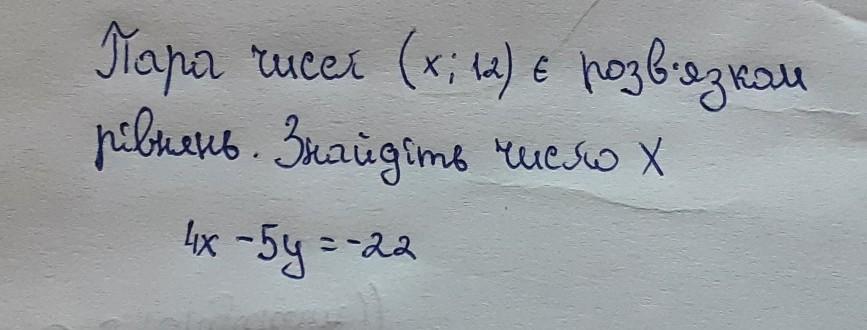 Пара чисел (x; 12) є розв'язком
рівнянь. Знайдіть число X
4x - 5y = -22